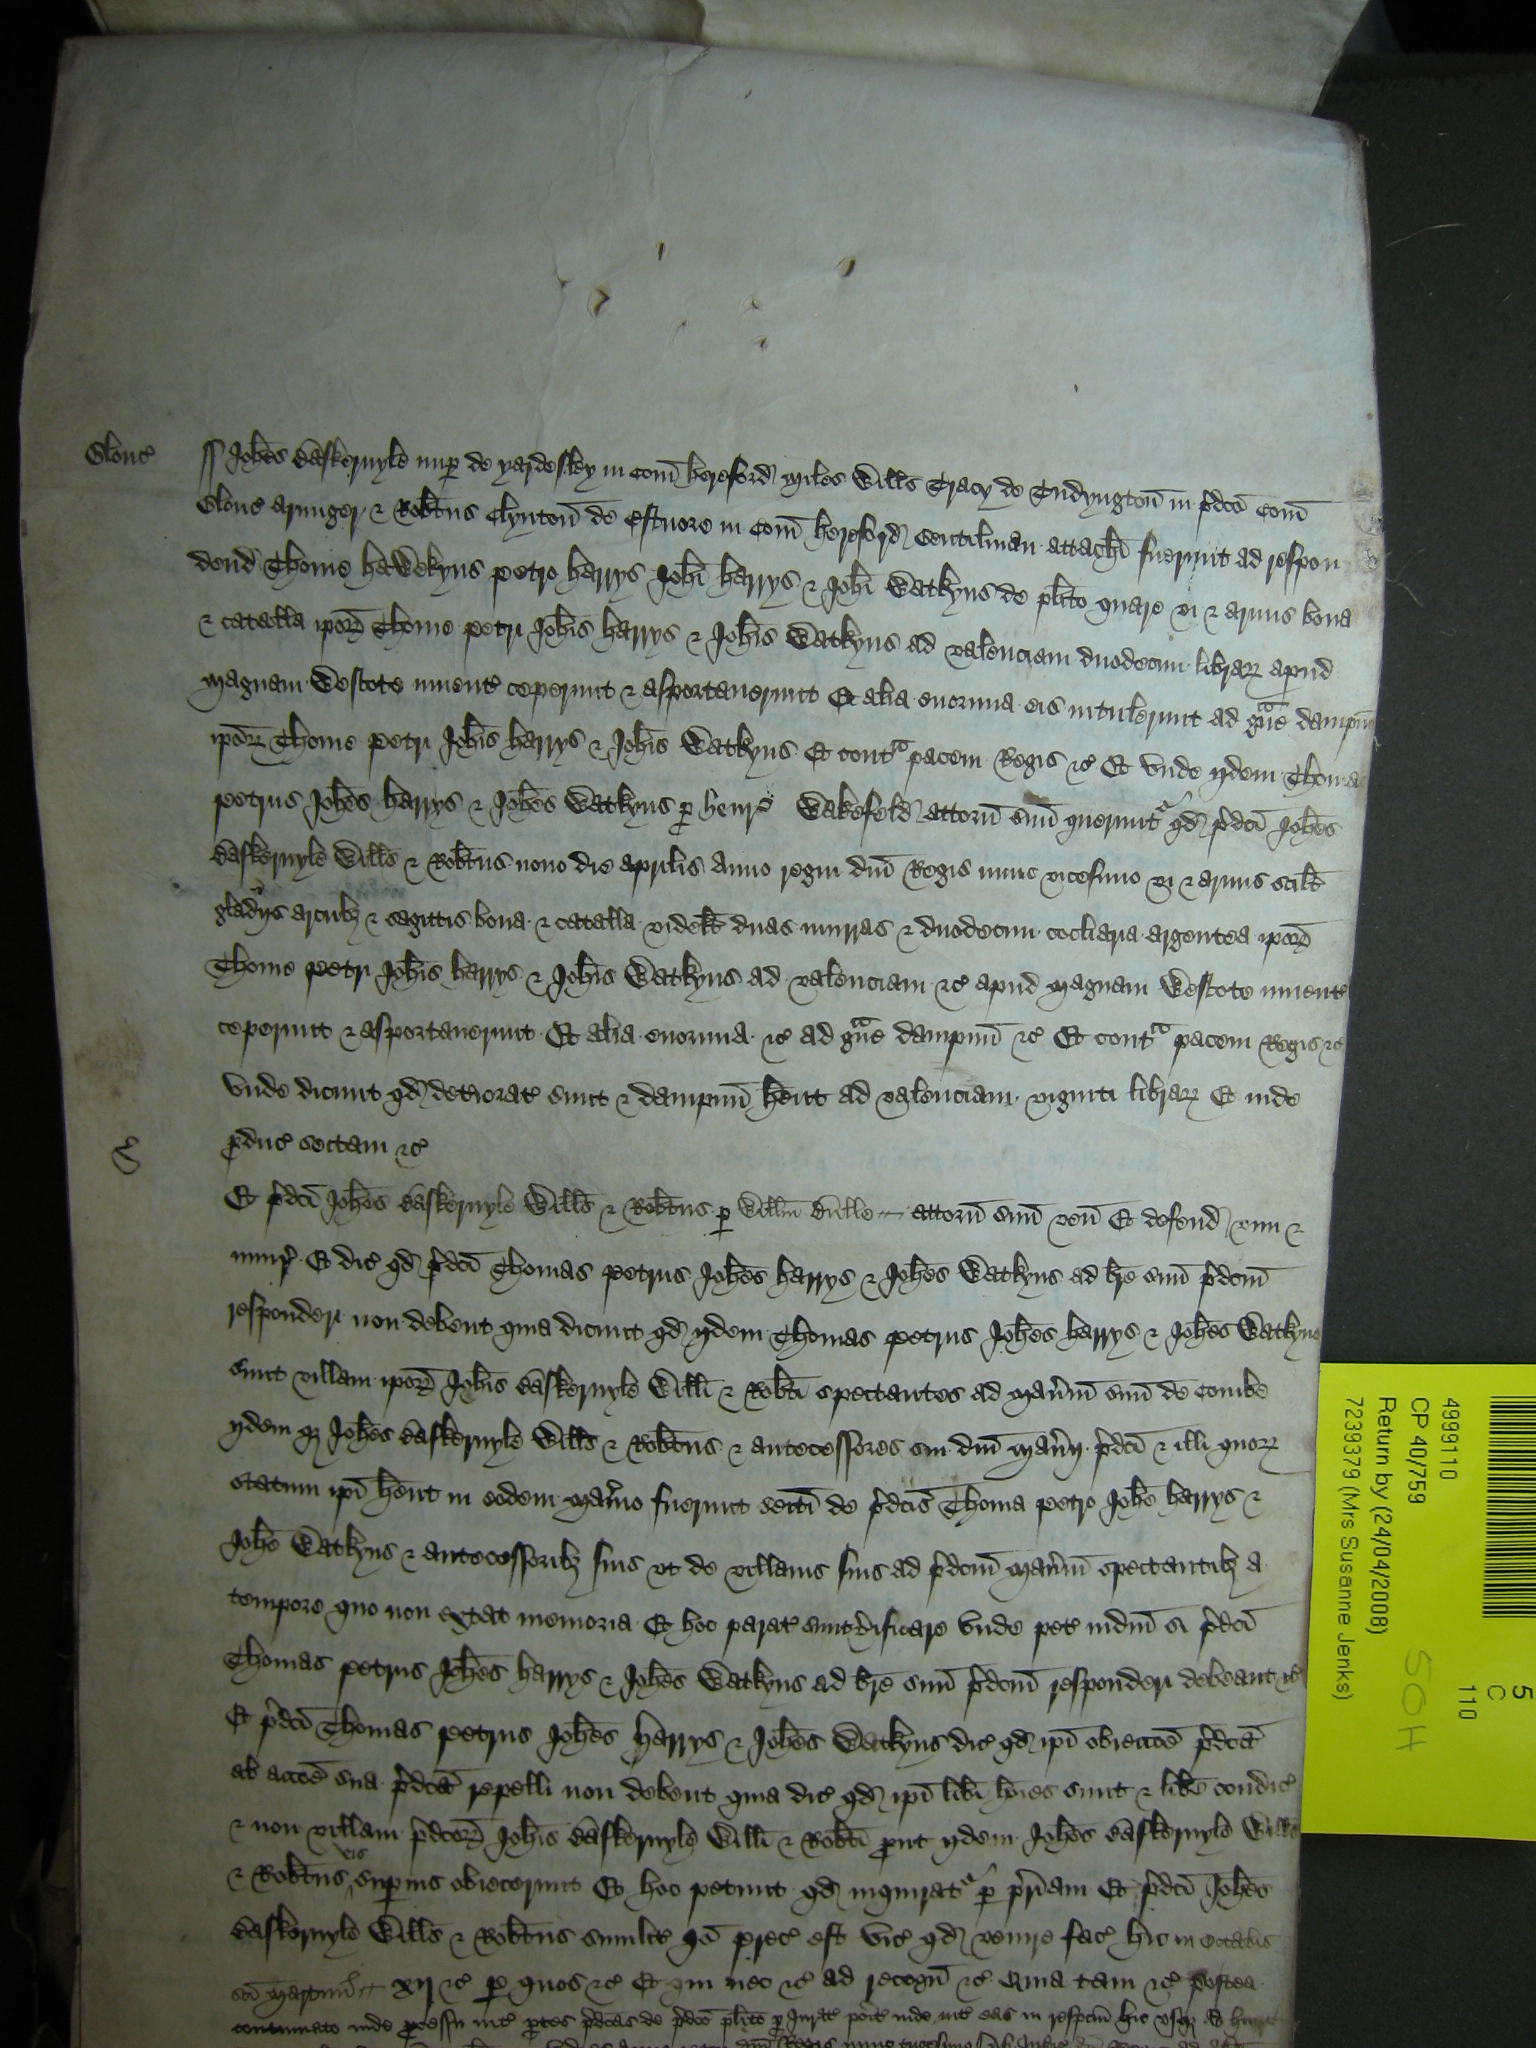 Glouc̃ ss Joh̃es Baskervyle nup̲ de yardesley in Com̃ hereford Miles Will̃s Tracy de Tudyngton̄ in p̃dc̃o Com̃
Glouc̃ armiger & Rob̃tus Clynton̄ de Estnore in Com̃ hereford Gentilman attach̃ fuerunt ad respon
dend Thome haWekyns petro harrys Joh̃i harrys & Joh̃i Watkyns de pl̃ito quare vi & armis bona
& catalla ip̃oꝝ Thome petri Joh̃is harrys & Joh̃is Watkyns ad valenciam duodecim libraꝝ apud
Magnam Westcote invent̃ ceperunt & asportaverunt Et alia enormia eis intulerunt ad gᵃve dampnū
ip̃oꝝ Thome petri Joh̃is harrys & Joh̃is Watkyns Et contᵃ pacem Regis &c̃ Et unde ijdem Thomas
petrus Joh̃es harrys & Joh̃es Watkyns p̲ henr̃ Wakefeld attorñ suū querunt̃ qd p̃dc̃i Joh̃es
Baskervyle Will̃s & Rob̃tus nono die aprilis Anno regni dñi Regis nunc vicesimo vi & armis scilt̃
gladijs arcubȝ & sagittis bona & catalla videlt̃ duas murras & duodecim cocliaria argentea ip̃oꝝ
Thome petri Joh̃is harrys & Joh̃is Watkyns ad valenciam &c̃ apud Magnam Westcote invent̃
ceperunt & asportaverunt Et alia enormia &c̃ ad gᵃve dampnū &c̃ Et contᵃ pacem Regis &c̃
Unde dicunt qd deteriorat̃ sunt & dampnū hent̃ ad valenciam viginti libraꝝ Et inde
p̲duc̃ sectam &c̃
Et p̃dc̃i Joh̃es Baskervyle Will̃s & Rob̃tus p̲ Will̃m attorñ suū veñ Et defend vim &
iniur̃ Et dic̃ qd p̃dc̃i Thomas petrus Joh̃es harrys & Joh̃es Watkyns ad br̃e suū p̃dc̃m
responderi non debent quia dicunt qd ijdem Thomas petrus Joh̃es harrys & Joh̃es Watkyns
sunt villani ip̃oꝝ Joh̃is Baskervyle Will̃i & Rob̃ti spectantes ad Man̄iū suū de Combe
ijdem qȝ Joh̃es Baskervyle Will̃s & Rob̃tus & antecessores sui dñi Man̄ij p̃dc̃i & illi quoꝝ
statum ip̃i hent̃ in eodem Man̄io fuerunt seiti de p̃dc̃is Thoma petro Joh̃e harrys &
Joh̃e Watkyns & antecessoribȝ suis ut de villanis suis ad p̃dc̃m Man̄iū spectantibȝ a
tempore quo non extat memoria Et hoc parat̃ sunt v̾ificare Unde pet̃ iudm̃ si p̃dc̃i
Thomas petrus Joh̃es harrys & Joh̃es Watkyns ad br̃e suū p̃dc̃m responderi debeant &c̃
Et p̃dc̃i Thomas petrus Joh̃es harrys & Joh̃es Watkyns dic̃ qd ip̃i obiecc̃oe p̃dc̃a
ab acc̃oe sua p̃dc̃a repelli non debent quia dic̃ qd ip̃i lib̃i hõies sunt & lib̃e condic̃
& non villani p̃dc̃oꝝ Joh̃is Baskervyle Will̃i & Rob̃ti p̲ut ijdem Joh̃es Baskervyle Will̃s
& Rob̃tus eis sup̲ius obiecerunt Et hoc petunt qd inquirat̃ p̲ p̃riam Et p̃dc̃i Joh̃es
Baskervyle Will̃s & Rob̃tus similit̃ Iõ prec̃ est vic̃ qd venire fac̃ hic in Octabis
sc̃i Martini xij &c̃ p̲ quos &c̃ Et qui nec &c̃ ad recogñ &c̃ Quia tam &c̃ postea
continuato inde p̲cessu int̃ p̲tes p̃dc̃as de p̃dc̃o pl̃ito p̲ Jur̃ posit̃ inde int̃ eas in respc̃m hic usqȝ ad hunc
4999110
CP 40/759
Return by (24/04/2008)
7239379 (Mrs Susanne Jenks)
SOH
5
C
110